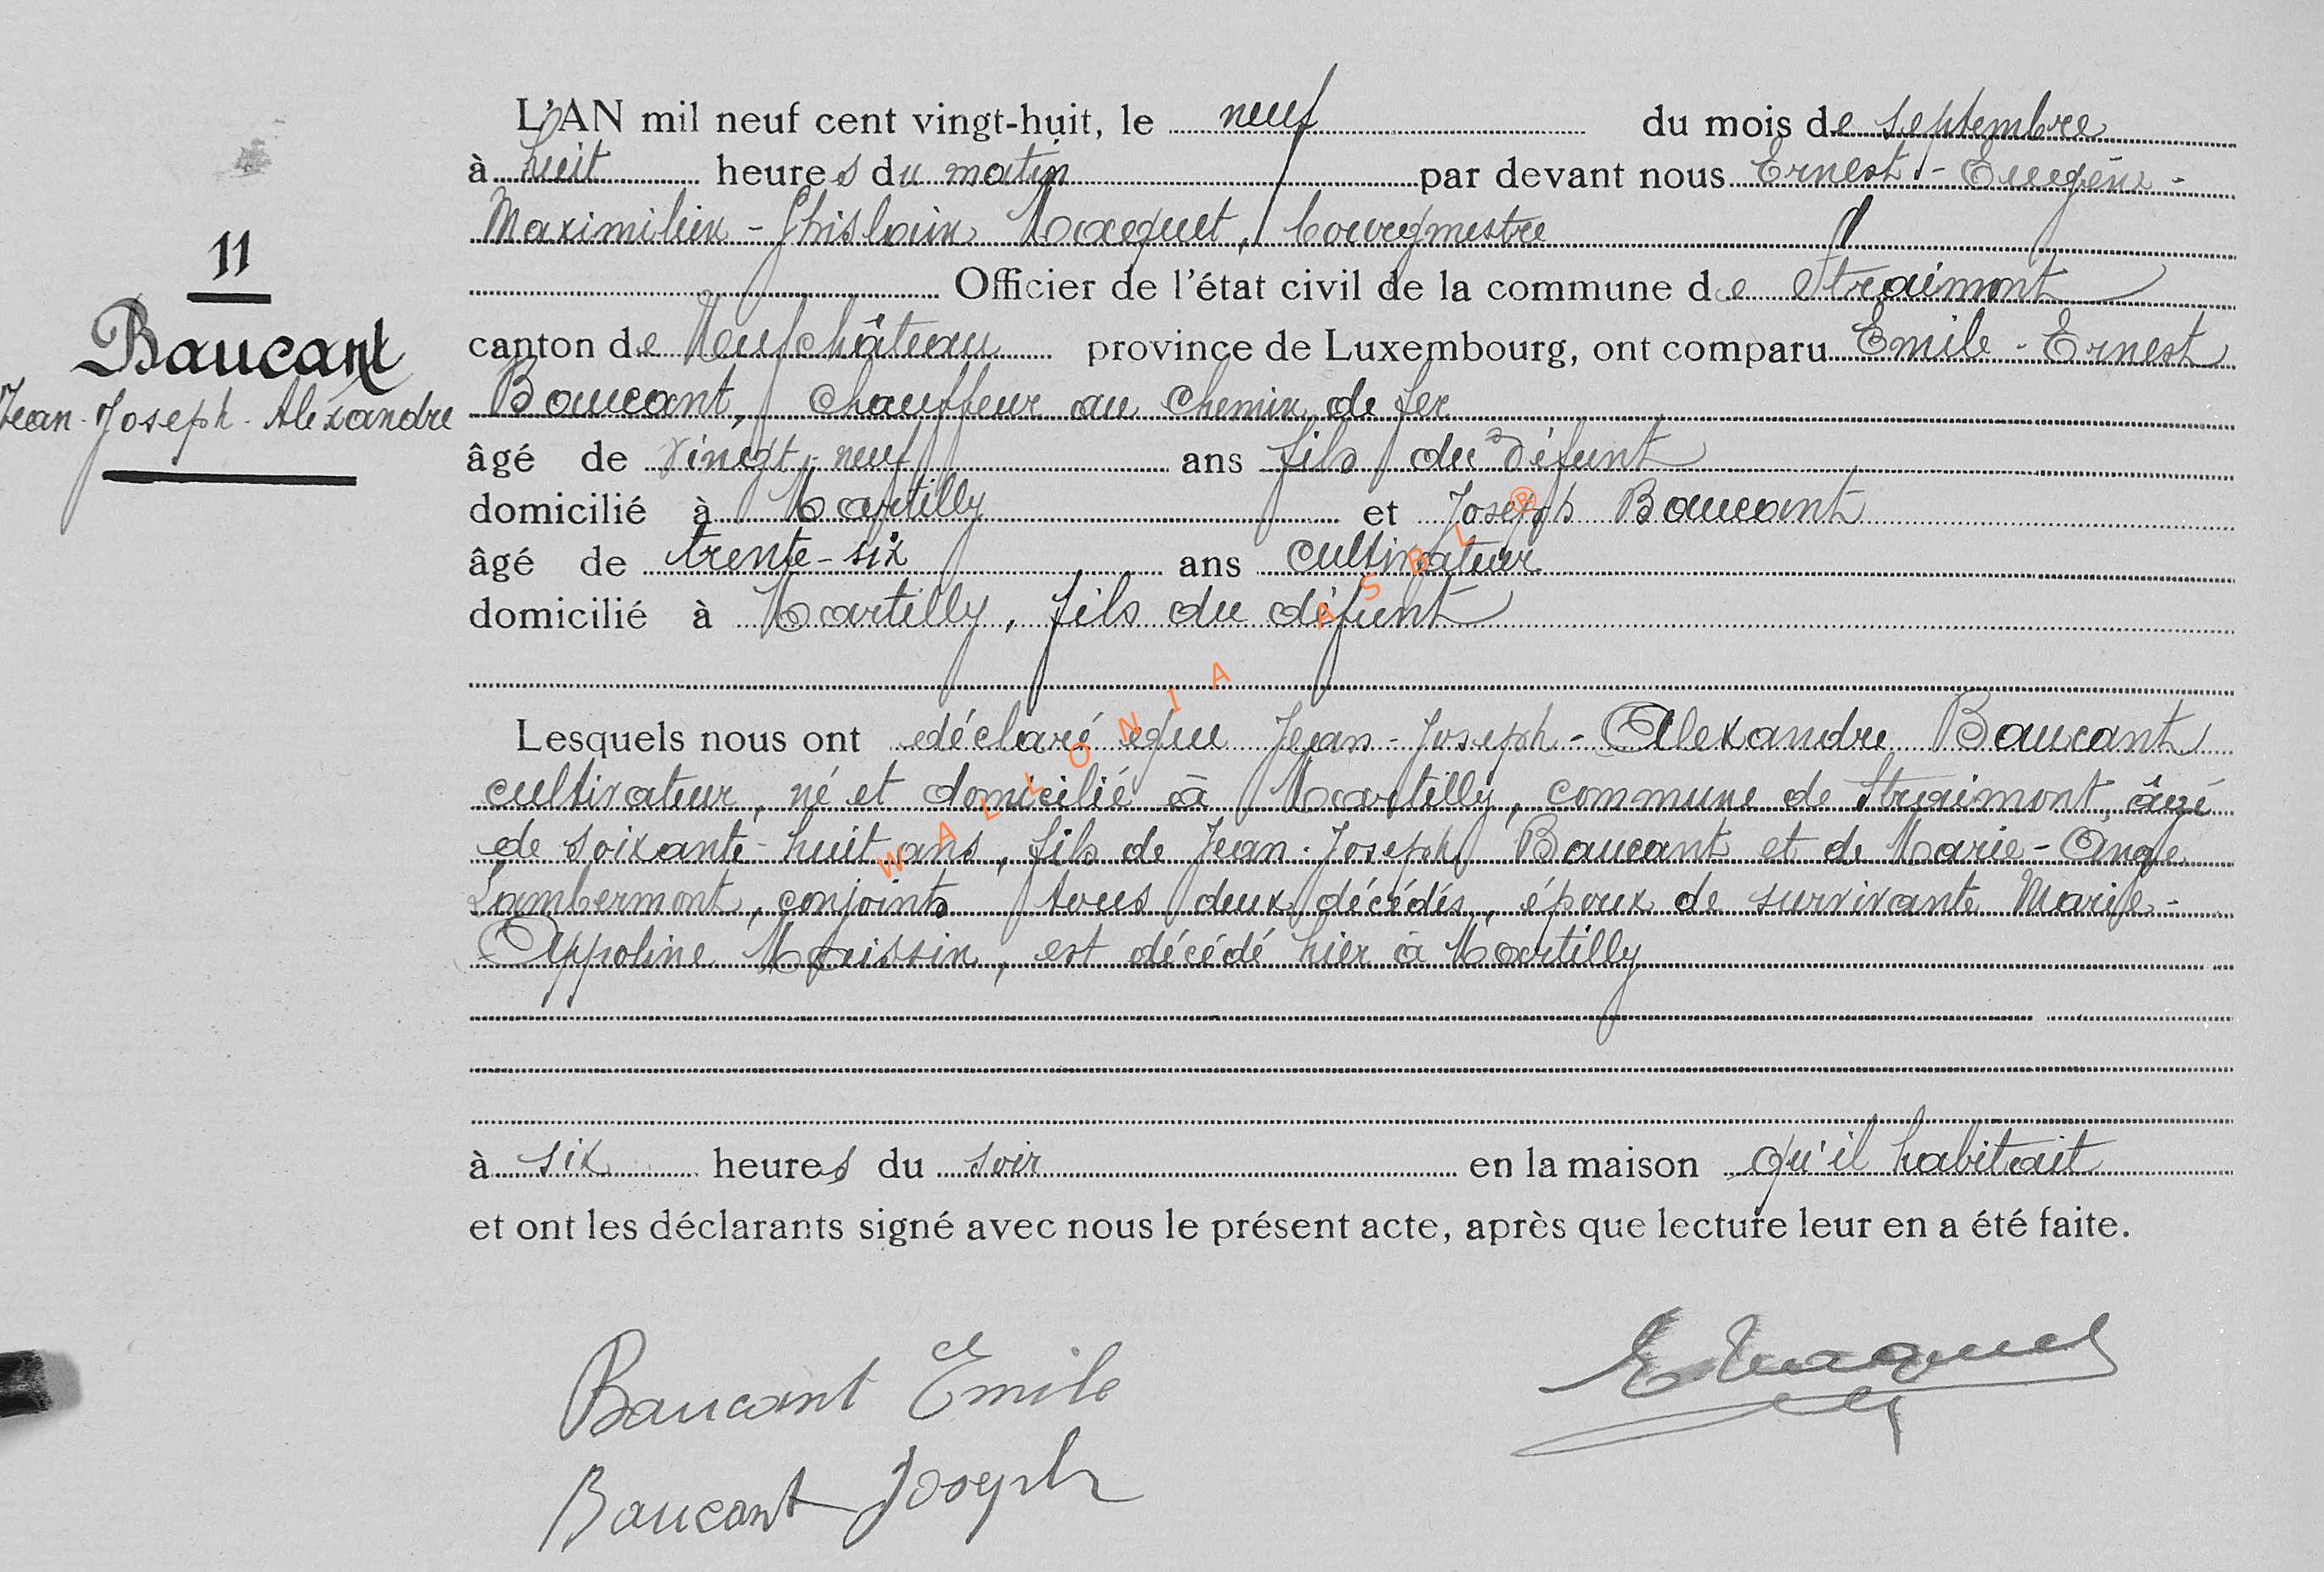 11
Baucant
Jean-Joseph-Alexandre
L'AN mil neuf cent vingt-huit, le neuf du mois de septembre
à huit heures du matin par devant nous Ernest-Eugène-
Maximilien-Ghislain Macquet, bourgmestre
Officier de l'état civil de la commune de Straimont
canton de Neufchâteau province de Luxembourg, ont comparu Emile-Ernest
Baucant, chauffeur au chemin de fer
âgé de vingt-neuf ans fils du défunt
domicilié à Martilly et Joseph Baucant
âgé de trente-six ans cultivateur
domicilié à Martilly, fils du défunt
Lesquels nous ont déclaré que Jean-Joseph-Alexandre Baucant
cultivateur, né et domicilié à Martilly, commune de Straimont, âgé
de soixante-huit ans, fils de Jean-Joseph Baucant et de Marie-Ange
Lambermont, conjoints tous deux décédés, époux de survivante Marie-
Appoline Maissin, est décédé hier à Martilly
à six heures du soir en la maison qu'il habitait
et ont les déclarants signé avec nous le présent acte, après que lecture leur en a été faite.
Baucant Emile
E Macquet
Baucant Joseph
WALLONIA ASBL ®